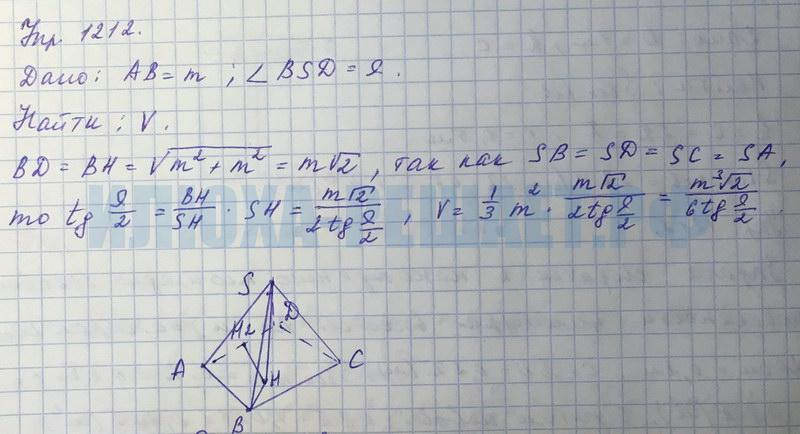 Упр 1212.
Дано: AB = m; ∠BSD = α.
Найти: V.
BD = BH = √(m² + m²) = m√2, так как SB = SD = SC = SA,
то tg α/2 = BH/SH · SH = m√2/(2tg α/2), V = 1/3 m² · m√2/(2tg α/2) = m³√2/(6tg α/2).
S
D
H2
A
C
H
B